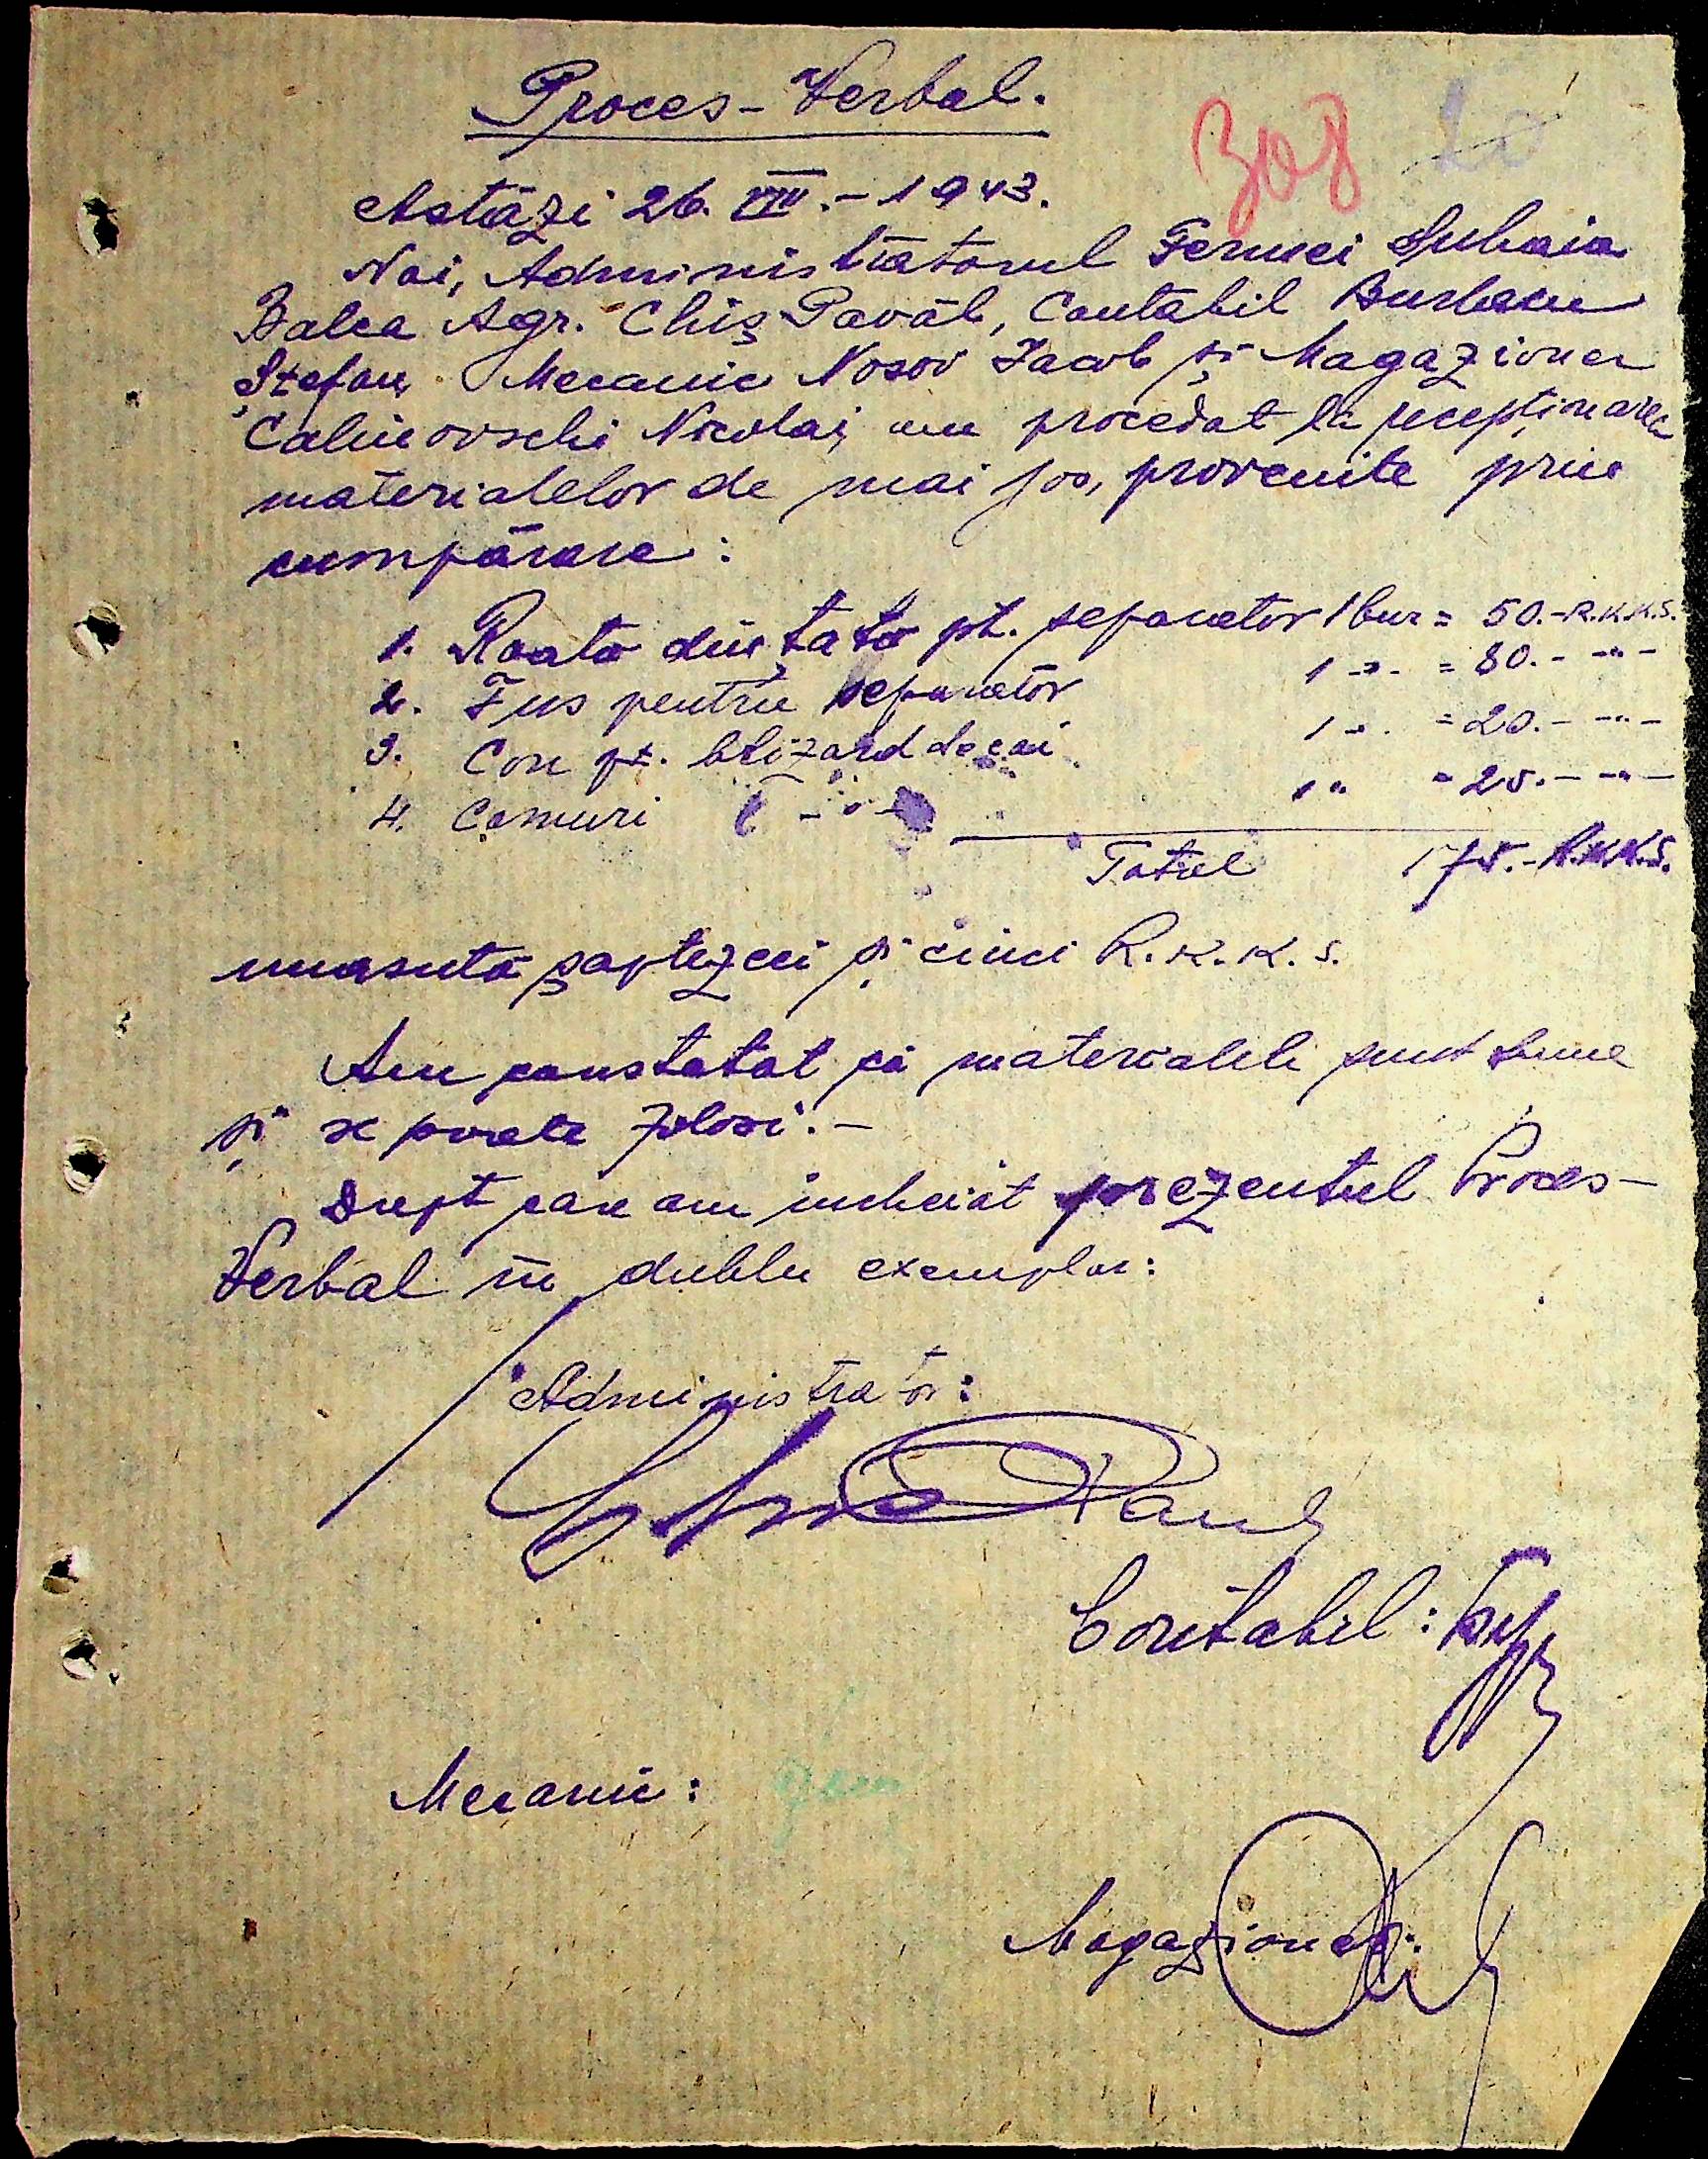 Proces-Verbal.
308 20
Astăzi 26. VIII.-1943.
Noi, Administratorul Fermei Suhaia
Balca Agr. Chiș Pavăl, Contabil
Ștefan, Mecanic Nosov Iacob și Magazioner
Calinovschi Nicolai, am procedat la recepționarea
materialelor de mai jos, provenite prin
cumpărare:
1. Roată dințată pt. separator 1 buc = 50.- R.K.K.S.
2. Fus pentru separator 1 -"- = 80.- -"-
3. Con pt. 1 -"- = 20.- -"-
4. 1 " = 25.- -"-
Total 175.- R.K.K.S.
unasută șaptezeci și cinci R.K.K.S.
Am constatat că materialele sunt bune
și se poate folosi.-
Drept care am încheiat prezentul Proces-
Verbal în dublu exemplar:
Administrator:
Contabil:
Mecanic:
Magazioner: